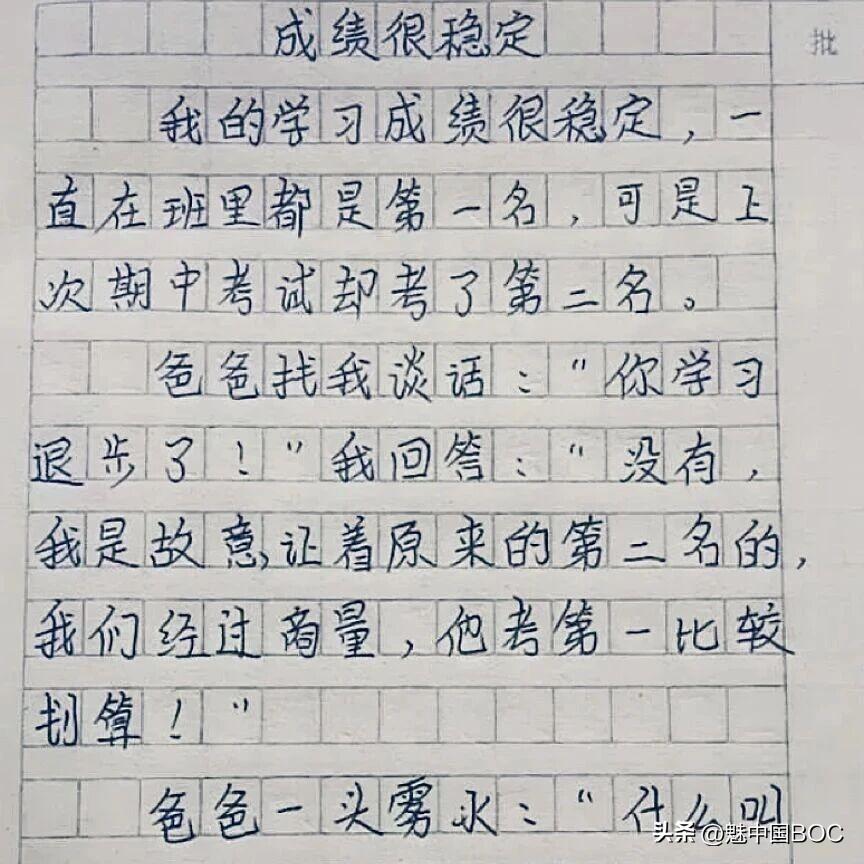 成绩很稳定
批
我的学习成绩很稳定，一
直在班里都是第一名，可是上
次期中考试却考了第二名。
爸爸找我谈话：“你学习
退步了！”我回答：“没有，
我是故意让着原来的第二名的，
我们经过商量，他考第一比较
划算！”
爸爸一头雾水：“什么叫
头条 @魅中国BOC